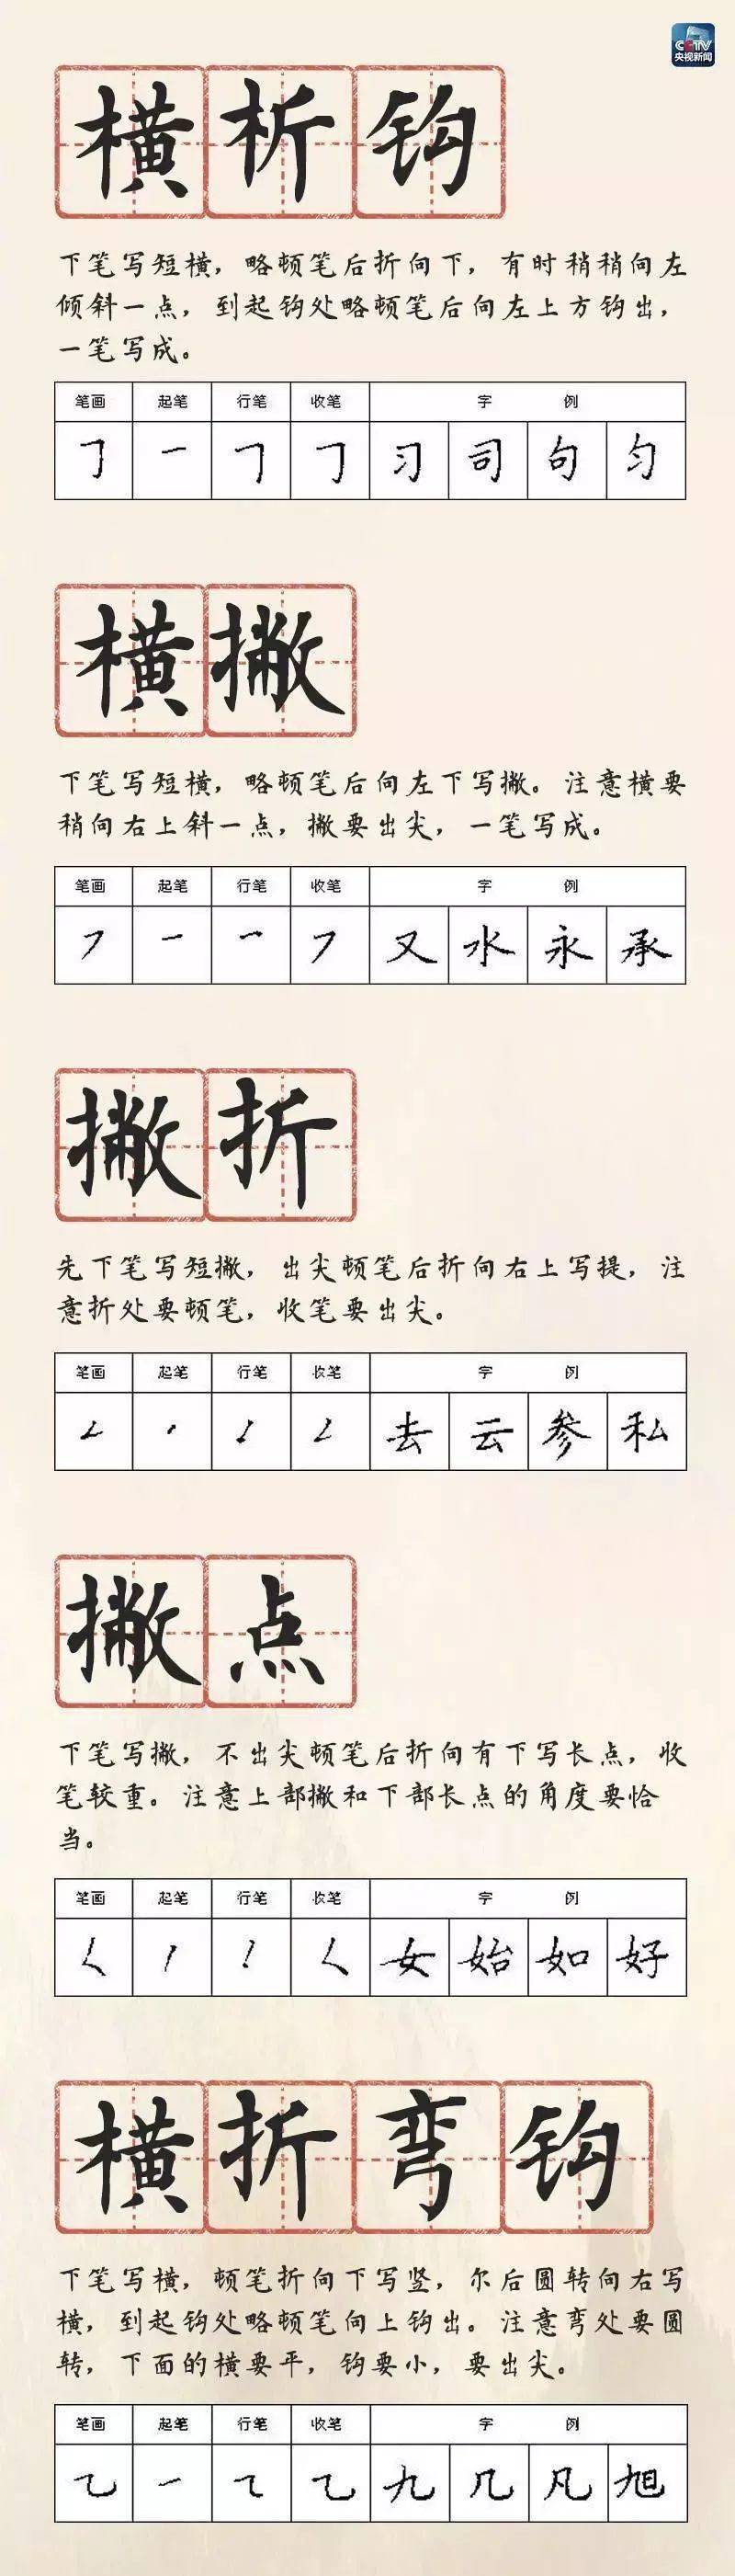 CCTV
央视新闻
横析钩
下笔写短横，略顿笔后折向下，有时稍稍向左
倾斜一点，到起钩处略顿笔后向左上方钩出，
一笔写成。
笔画 起笔 行笔 收笔 字 例
㇆ 一 ㇆ ㇆ 习 司 句 匀
横撇
下笔写短横，略顿笔后向左下写撇。注意横要
稍向右上斜一点，撇要出尖，一笔写成。
笔画 起笔 行笔 收笔 字 例
㇇ 一 ㇇ 又 水 永 承
撇折
先下笔写短撇，出尖顿笔后折向右上写提，注
意折处要顿笔，收笔要出尖。
笔画 起笔 行笔 收笔 字 例
㇜ ㇜ 去 云 参 私
撇点
下笔写撇，不出尖顿笔后折向有下写长点，收
笔较重。注意上部撇和下部长点的角度要恰
当。
笔画 起笔 行笔 收笔 字 例
㇛ ㇛ 女 始 如 好
横折弯钩
下笔写横，顿笔折向下写竖，尔后圆转向右写
横，到起钩处略顿笔向上钩出。注意弯处要圆
转，下面的横要平，钩要小，要出尖。
笔画 起笔 行笔 收笔 字 例
㇈ 一 ㇈ ㇈ 九 几 凡 旭